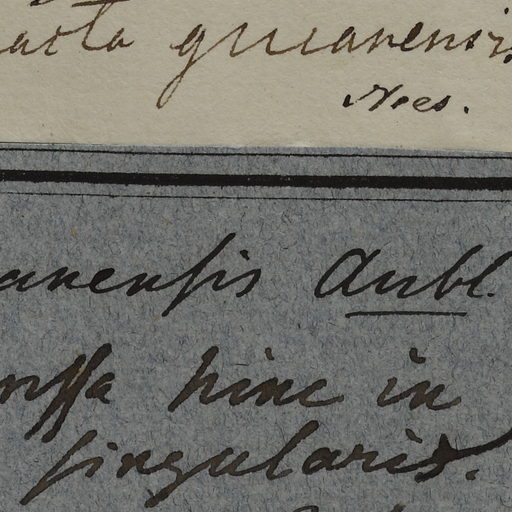 acta guianensis
Nees.
anensis Aubl.
ossa hinc in
singularis.